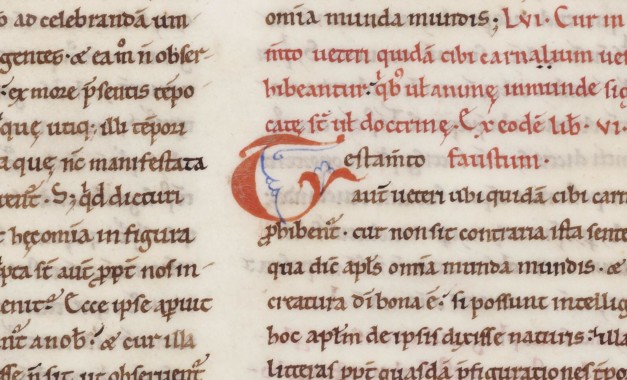 o ad celebrandā um
gentes · & ea m̄ n̄ obser-
· ex more p̄sentis tēpo
que utiq; illi tēpori
a quę nc̄ manifestata
Sz qd̄ dicturi
t hęc omīa in figura
pta st̄ aut̄ ppt̄ nos in-
enit? Ecce ipse apuit
nt̄ a nob̄ · & cur illa
sse n̄ sit, ut observent̄
omīa munda mundis; LVI. Cur in
m̄to ueteri quidā cibi carnalium ue
hibeantur · qb; ul̄ animę immundę sig
catę st̄ ul̄ doctrinę. Ex eodē lib · VI ·
Testam̄to faustum
aut̄ ueteri ubi quidā cibi carn
ꝓhibent̄ · cur non sit contraria ista sente
qua dic̄ apl̄s omīa munda mundis · &
creatura dī bona ē; si possunt intellig
hoc apl̄m de ipsis dixisse naturis · illa
litteras ppt̄ quasdā p̄figurationes tp̄o